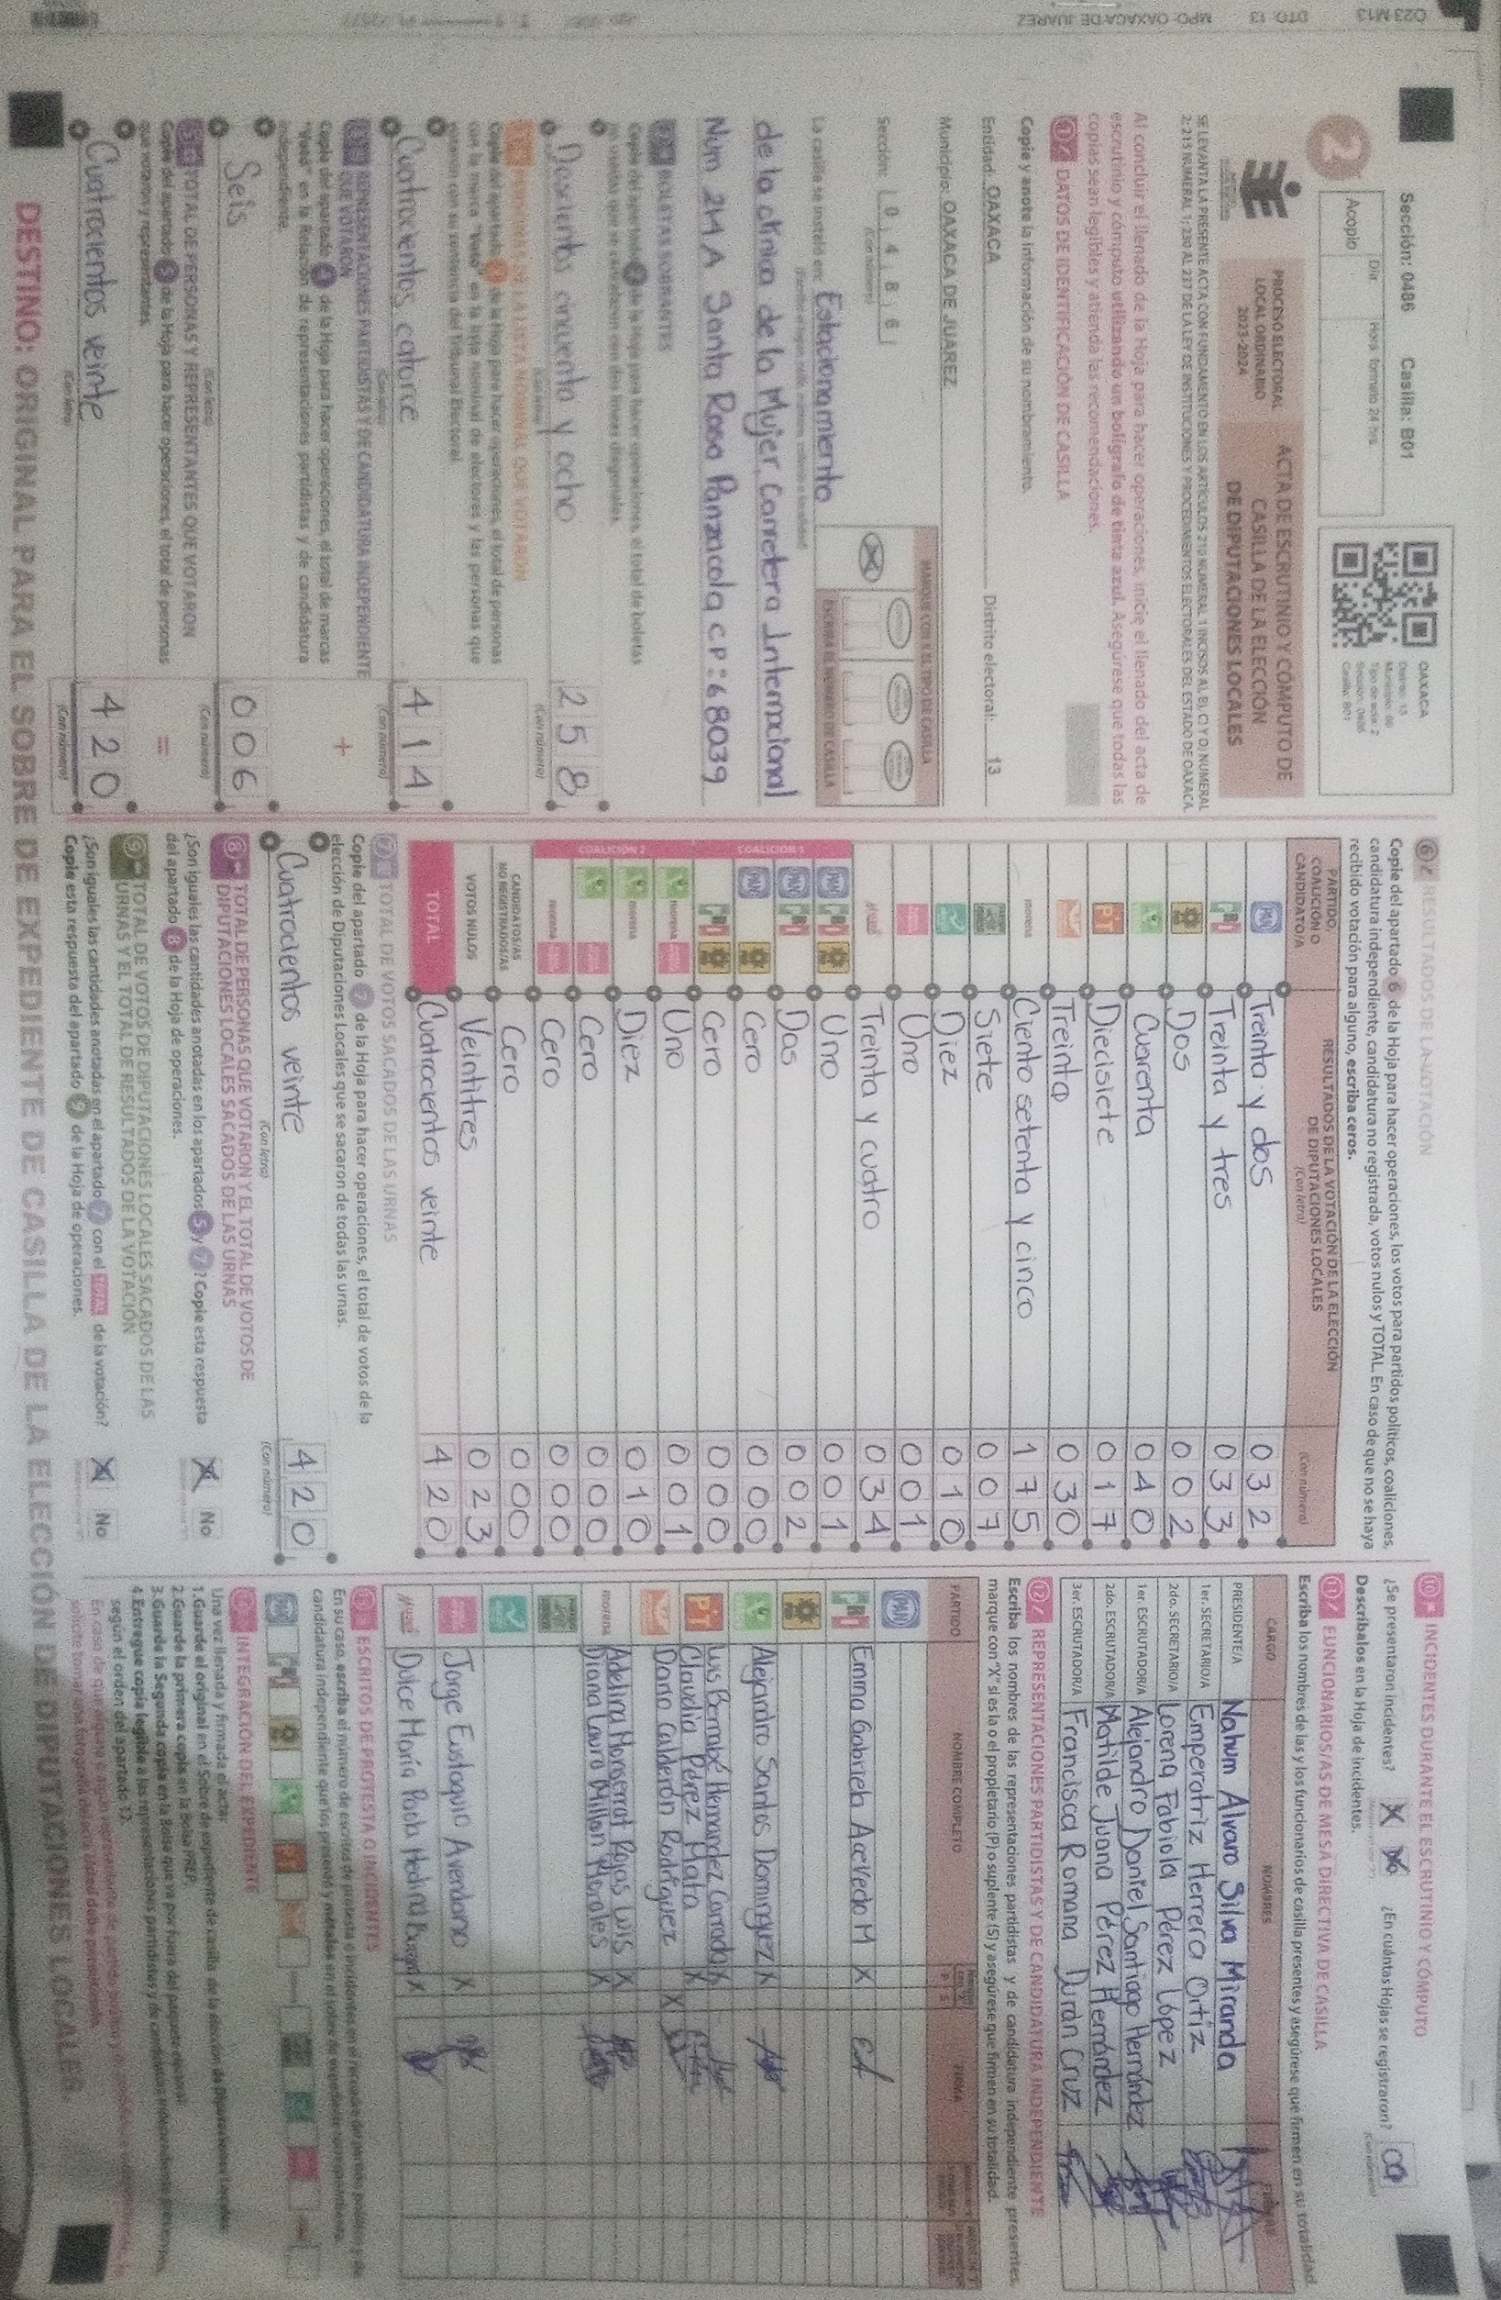 023 M13
DTO 13
MPO. OAXACA DE JUAREZ
Sección: 0486 Casilla: B01
Día
Hora formato 24 hrs.
Acopio
2
OAXACA
PROCESO ELECTORAL
LOCAL ORDINARIO
2023-2024
ACTA DE ESCRUTINIO Y CÓMPUTO DE
CASILLA DE LA ELECCIÓN
DE DIPUTACIONES LOCALES
SE LEVANTA LA PRESENTE ACTA CON FUNDAMENTO EN LOS ARTÍCULOS
Al concluir el llenado de la Hoja para hacer operaciones, inicie el llenado del acta de
escrutinio y cómputo utilizando un bolígrafo de tinta azul. Asegúrese que todas las
copias sean legibles y atienda las recomendaciones.
1 DATOS DE IDENTIFICACIÓN DE CASILLA
Copie y anote la información de su nombramiento.
Entidad: OAXACA Distrito electoral: 13
Municipio: OAXACA DE JUAREZ
Sección: 0 4 8 6
(Con número)
MARQUE CON X EL TIPO DE CASILLA
ESCRIBA EL NÚMERO DE CASILLA
La casilla se instaló en: Estacionamiento
de la clínica de la Mujer, Carretera Internacional
Num 214 A Santa Rosa Panzacola C.P: 68039
2 BOLETAS SOBRANTES
Copie del apartado 2 de la Hoja para hacer operaciones, el total de boletas
Doscientos cincuenta y ocho 258
3 PERSONAS DE LA LISTA NOMINAL QUE VOTARON
Copie del apartado 3 de la Hoja para hacer operaciones, el total de personas
con la marca "Votó" en la lista nominal de electores y las personas que
votaron con su sentencia del Tribunal Electoral.
Cuatrocientos catorce 414
4 REPRESENTACIONES PARTIDISTAS Y DE CANDIDATURA INDEPENDIENTE
QUE VOTARON
Copie del apartado 4 de la Hoja para hacer operaciones, el total de marcas
"Votó" en la Relación de representaciones partidistas y de candidatura
independiente.
Seis 006
5 TOTAL DE PERSONAS Y REPRESENTANTES QUE VOTARON
Copie del apartado 5 de la Hoja para hacer operaciones, el total de personas
que votaron y representantes.
Cuatrocientos veinte 420
6 RESULTADOS DE LA VOTACIÓN
Copie del apartado 6 de la Hoja para hacer operaciones, los votos para partidos políticos, coaliciones,
candidatura independiente, candidatura no registrada, votos nulos y TOTAL. En caso de que no se haya
recibido votación para alguno, escriba ceros.
PARTIDO,
COALICIÓN O
CANDIDATO/A
RESULTADOS DE LA VOTACIÓN DE LA ELECCIÓN
DE DIPUTACIONES LOCALES
(Con letra)
(Con número)
PAN Treinta y dos 032
PRI Treinta y tres 033
Dos 002
Cuarenta 040
PT Diecisiete 017
Treinta 030
morena Ciento setenta y cinco 175
Siete 007
Diez 010
Uno 001
Treinta y cuatro 034
COALICIÓN 1
Uno 001
Dos 002
Cero 000
Cero 000
COALICIÓN 2
Uno 001
Diez 010
Cero 000
Cero 000
CANDIDATOS/AS
NO REGISTRADOS/AS Cero 000
VOTOS NULOS Veintitres 023
TOTAL Cuatrocientos veinte 420
7 TOTAL DE VOTOS SACADOS DE LAS URNAS
Copie del apartado 7 de la Hoja para hacer operaciones, el total de votos de la
elección de Diputaciones Locales que se sacaron de todas las urnas.
Cuatrocientos veinte 420
(Con letra) (Con número)
8 TOTAL DE PERSONAS QUE VOTARON Y EL TOTAL DE VOTOS DE
DIPUTACIONES LOCALES SACADOS DE LAS URNAS
¿Son iguales las cantidades anotadas en los apartados 5 y 7? Copie esta respuesta
del apartado 8 de la Hoja de operaciones. X No
9 TOTAL DE VOTOS DE DIPUTACIONES LOCALES SACADOS DE LAS
URNAS Y EL TOTAL DE RESULTADOS DE LA VOTACIÓN
¿Son iguales las cantidades anotadas en el apartado 7 con el TOTAL de la votación?
Copie esta respuesta del apartado 9 de la Hoja de operaciones. X No
10 INCIDENTES DURANTE EL ESCRUTINIO Y CÓMPUTO
¿Se presentaron incidentes? ¿En cuántas Hojas se registraron?
Descríbalos en la Hoja de Incidentes.
11 FUNCIONARIOS/AS DE MESA DIRECTIVA DE CASILLA
Escriba los nombres de las y los funcionarios de casilla presentes y asegúrese que firmen en su totalidad
CARGO NOMBRES
PRESIDENTE/A Nahum Alvaro Silva Miranda
1er. SECRETARIO/A Emperatriz Herrera Ortiz
2do. SECRETARIO/A Lorena Fabiola Pérez López
1er. ESCRUTADOR/A Alejandro Daniel Santiago Hernández
2do. ESCRUTADOR/A Matilde Juana Pérez Hernández
3er. ESCRUTADOR/A Francisca Romana Durán Cruz
12 REPRESENTACIONES PARTIDISTAS Y DE CANDIDATURA INDEPENDIENTE
Escriba los nombres de las representaciones partidistas y de candidatura independiente presentes,
marque con "X" si es la o el propietario (P) o suplente (S) y asegúrese que firmen en su totalidad.
PARTIDO NOMBRE COMPLETO FIRMA
PAN
PRI Emma Gabriela Acevedo M X
Alejandro Santos Dominguez X
PT Luis Bernabé Hernandez Conrado X
Claudia Pérez Mata X
Dario Calderón Rodríguez X
morena Adelina Monserrat Rojas Luis X
Diana Laura Millan Morales X
Jorge Eustaquio Avendano X
Dulce María Paola Medina X
13 ESCRITOS DE PROTESTA O INCIDENTES
INTEGRACIÓN DEL EXPEDIENTE
Una vez llenada y firmada el acta:
1. Guarde el original en el Sobre de expediente de casilla de la elección de Diputaciones Locales.
2. Guarde la primera copia en la Bolsa PREP.
3. Guarde la Segunda copia en la Bolsa que va por fuera del paquete electoral.
4. Entregue copia legible a las representaciones partidistas y de candidatura independiente presentes,
según el orden del apartado 12.
DESTINO: ORIGINAL PARA EL SOBRE DE EXPEDIENTE DE CASILLA DE LA ELECCIÓN DE DIPUTACIONES LOCALES